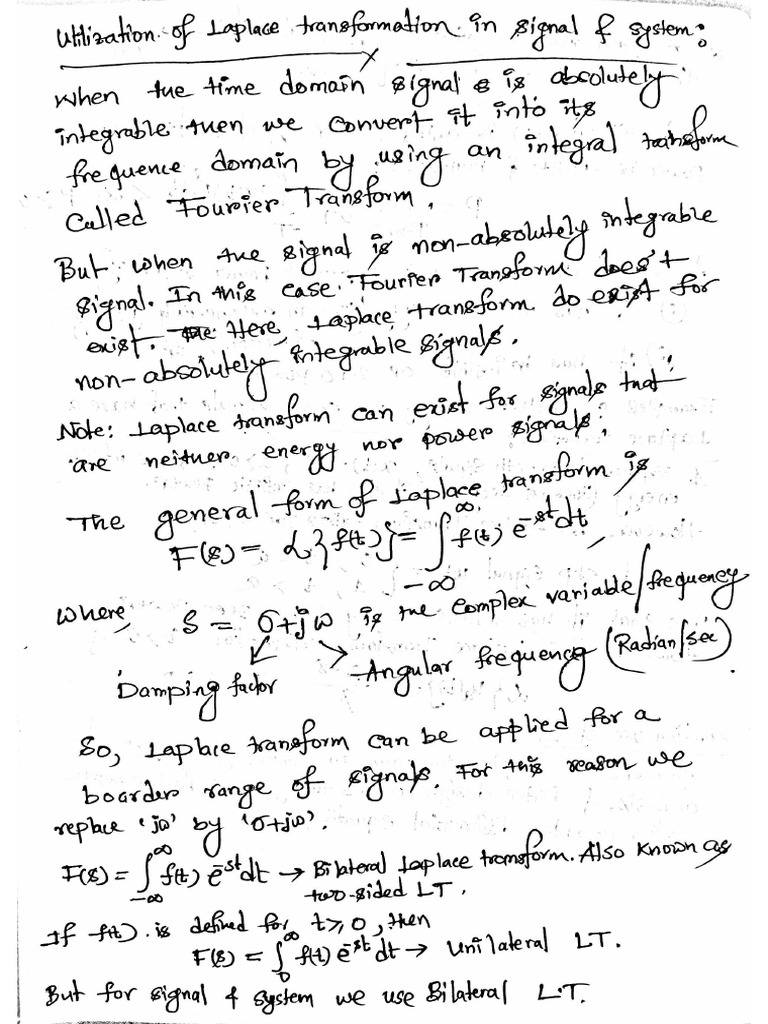 Utilization of Laplace transformation in signal & system:
When the time domain signal is absolutely
integrable then we convert it into its
frequence domain by using an integral transform
called Fourier Transform.
But, when the signal is non-absolutely integrable
signal. In this case Fourier Transform does't
exist. Here, Laplace transform do exist for
non-absolutely integrable signals.
Note: Laplace transform can exist for signals that
are neither energy nor power signals.
The general form of Laplace transform is
F(s) = L{f(t)} = ∫_{-∞}^{∞} f(t) e^{-st} dt
where, s = σ+jω is the complex variable/frequency
Damping factor Angular frequency (Radian/sec)
So, Laplace transform can be applied for a
boarder range of signals. For this reason we
replace 'jω' by 'σ+jω'.
F(s) = ∫_{-∞}^{∞} f(t) e^{-st} dt → Bilateral Laplace transform. Also known as
two-sided LT.
If f(t) is defined for t≥0, then
F(s) = ∫_{0}^{∞} f(t) e^{-st} dt → Unilateral LT.
But for signal & system we use Bilateral L.T.